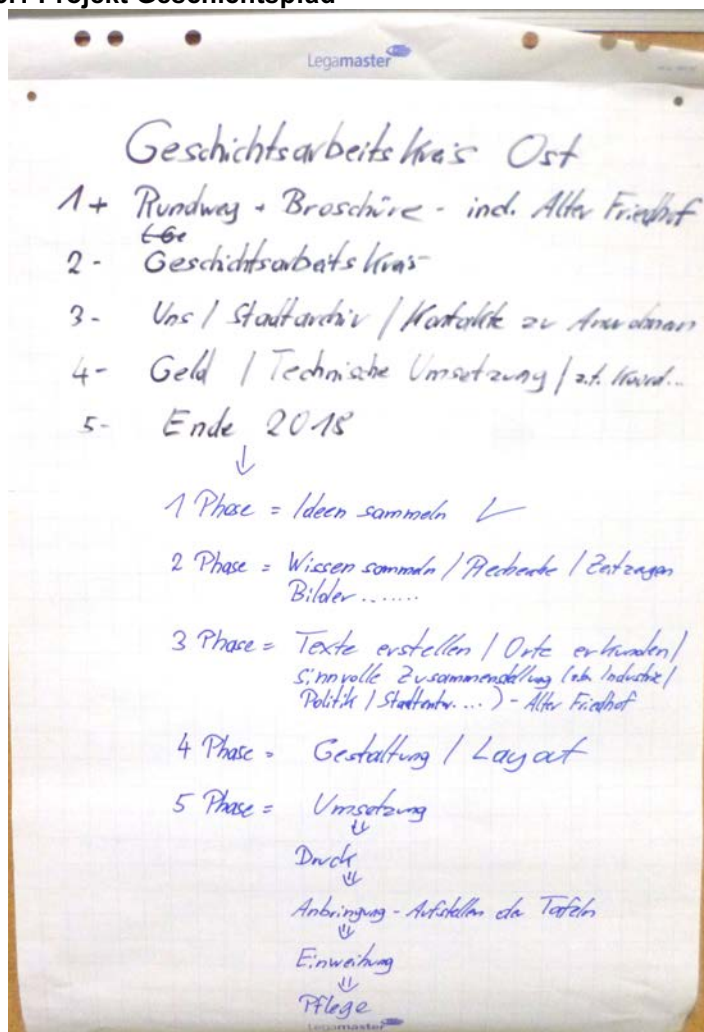 Projekt Geschichtspfad
Legamaster
Geschichtsarbeitskreis Ost
1+ Rundweg + Broschüre - incl. Alter Friedhof
2- Geschichtsarbeitskreis
3- Uns / Stadtarchiv / Kontakte zu Anwohnern
4- Geld / Technische Umsetzung / z.t. Koord...
5- Ende 2018
1 Phase = Ideen sammeln
2 Phase = Wissen sammeln / Recherche / Zeitzeugen
Bilder .......
3 Phase = Texte erstellen / Orte erkunden /
sinnvolle Zusammenstellung (z.b. Industrie /
Politik / Stadtentw. ...) - Alter Friedhof
4 Phase = Gestaltung / Layout
5 Phase = Umsetzung
Druck
Anbringung - Aufstellen der Tafeln
Einweihung
Pflege
Legamaster